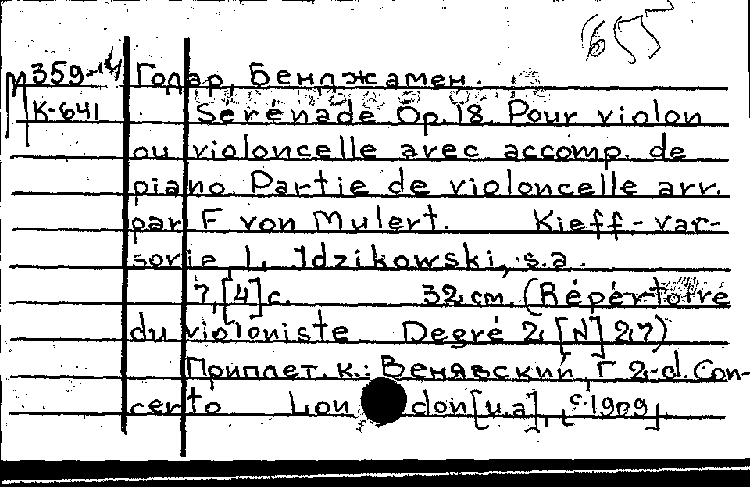 655
М359-14 Годар, Бенджамен.
К-641 Serenade Op. 18. Pour violon
ou violoncelle avec accomp. de
piano. Partie de violoncelle arr.
par F. von Mulert. Kieff.-Var-
sovie, L. Idzikowski, s.a.
7,[4] с. 32 см. (Répértoire
du violoniste Degré 2. [N] 27)
Приплет. к.: Венявский, Г. 2-d. Con-
certo London [u.a], [c. 1909]